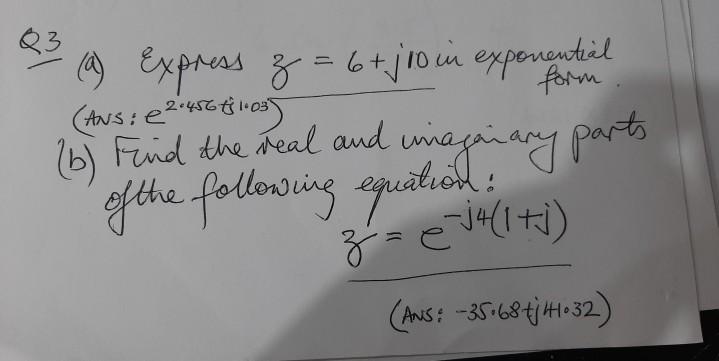 Q3
(a) Express z = 6+j10 in exponential
form.
(ANS: e^2.456+j1.03)
(b) Find the real and imaginary parts
of the following equation:
z = e^-j4(1+j)
(ANS: -35.68+j41.32)